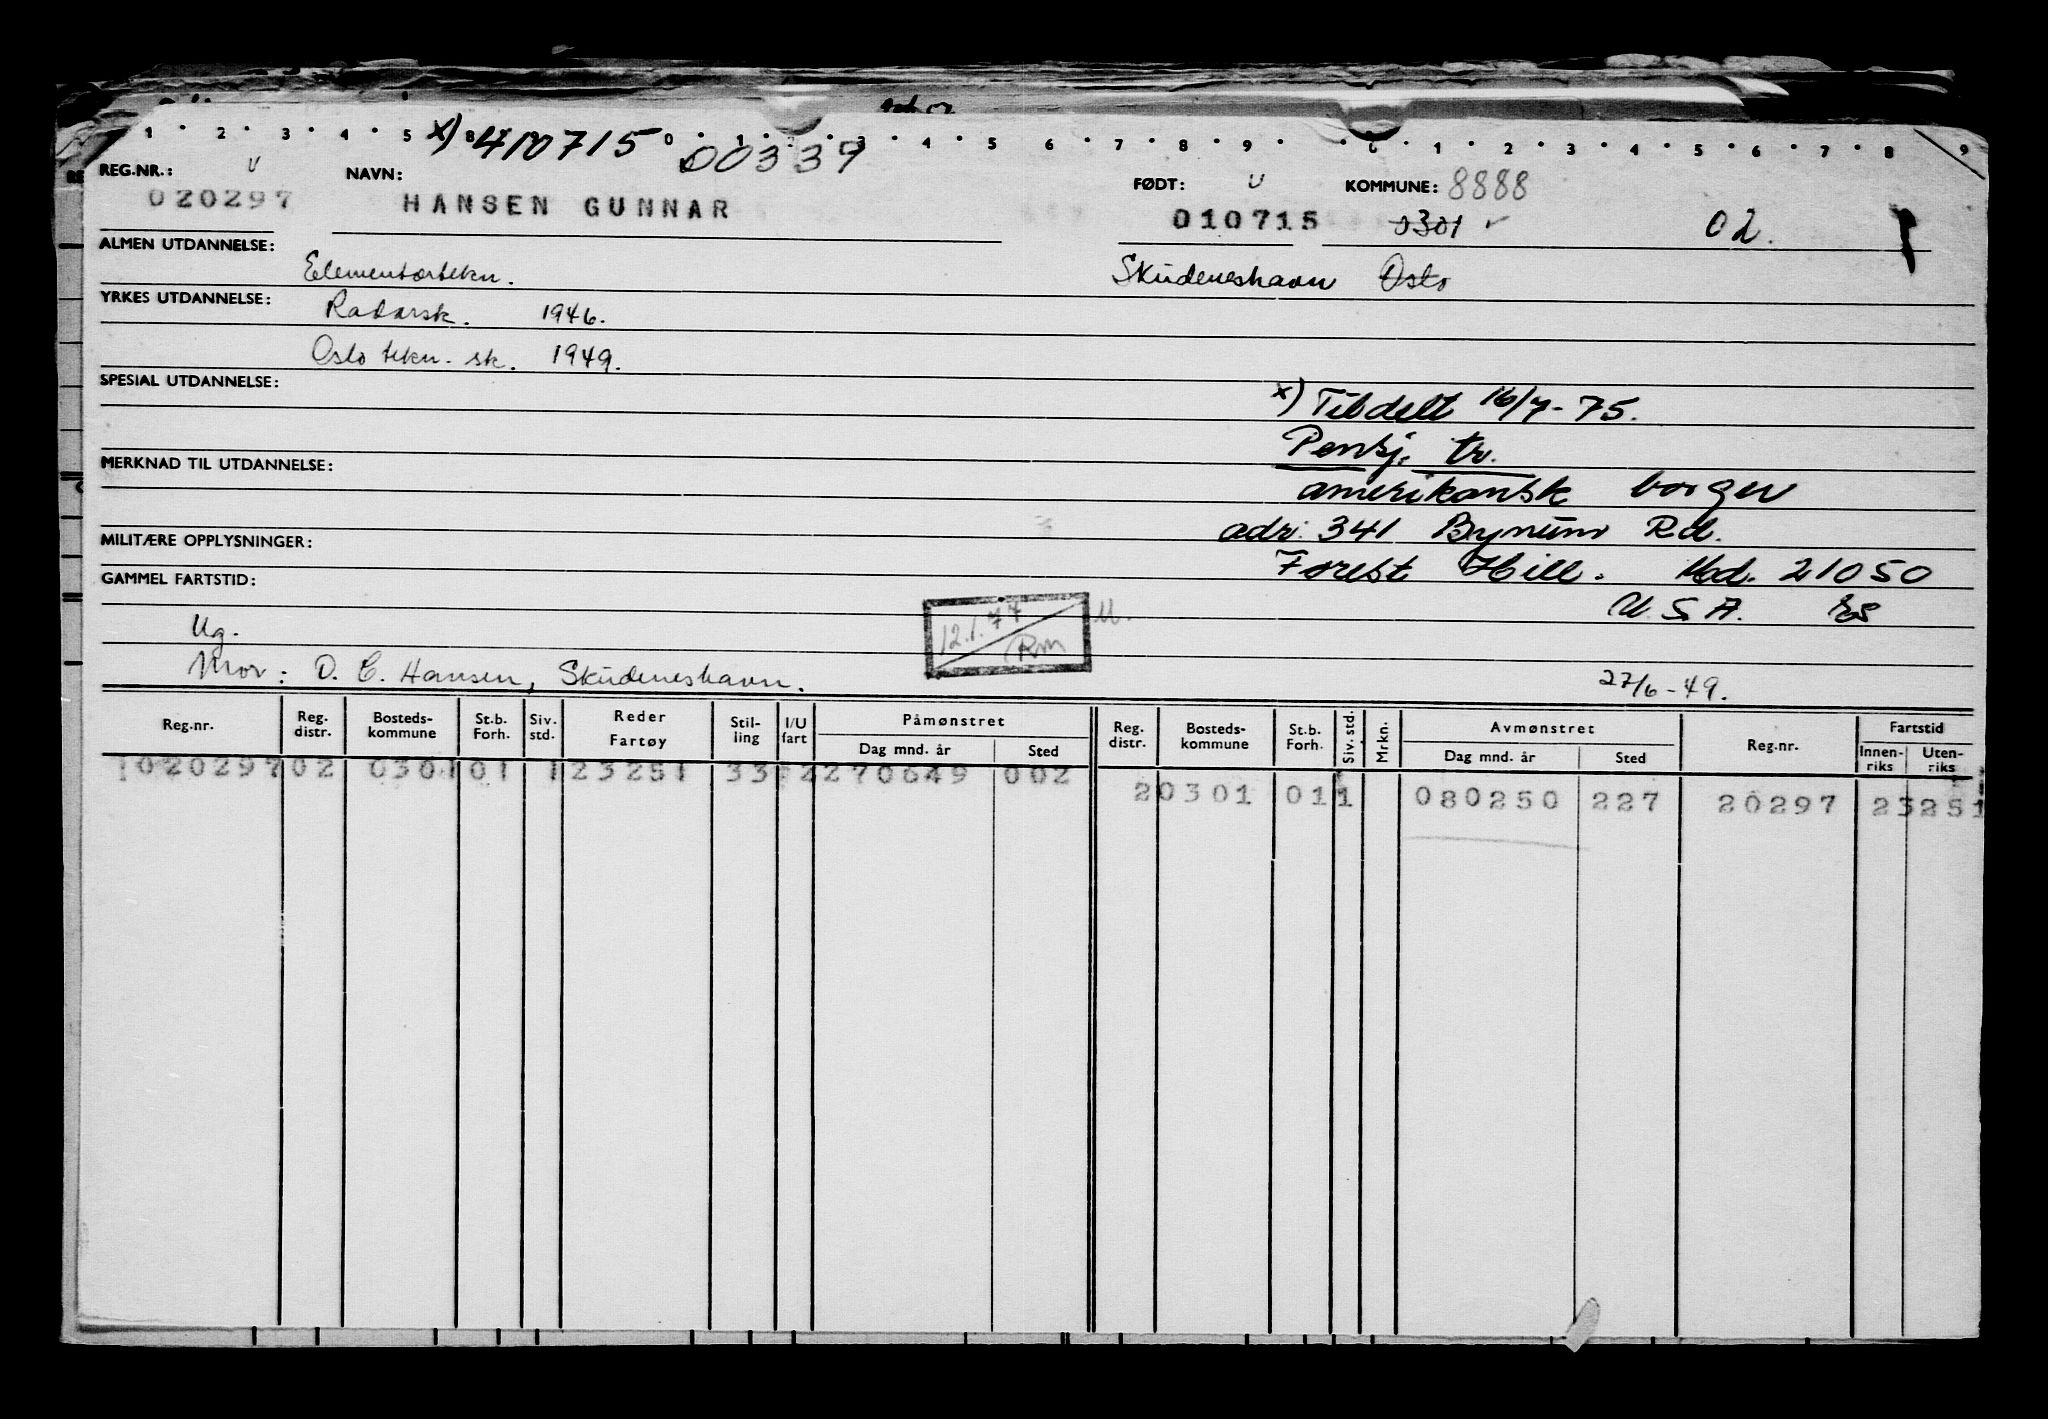 1 2 3 4 5 8 0 1 2 3 4 5 6 7 8 9 0 1 2 3 4 5 6 7 8 9
x) 410715 00339
REG.NR.: NAVN: FØDT: KOMMUNE: 8888
020297 HANSEN GUNNAR 010715 0301 02.
ALMEN UTDANNELSE: Elementærtekn. Skudeneshavn Oslo
YRKES UTDANNELSE: Radarsk. 1946.
Oslo tekn. sk. 1949.
SPESIAL UTDANNELSE:
x) Tildelt 16/7-75.
Pensj. tr.
MERKNAD TIL UTDANNELSE:
amerikansk borger
adr: 341 Bynum Rd.
MILITÆRE OPPLYSNINGER:
Forest Hill. Md. 21050
GAMMEL FARTSTID:
U.S.A.
Ug. 12.1.77 Rm U.
Mor: D. E. Hansen, Skudeneshavn. 27/6-49.
Reg.nr. Reg. distr. Bosteds-kommune St.b. Forh. Siv. std. Reder Fartøy Stil-ling I/U fart Påmønstret Dag mnd. år Sted Reg. distr. Bosteds-kommune St.b. Forh. Siv. std. Mrkn. Avmønstret Dag mnd. år Sted Reg.nr. Fartstid Innen-riks Uten-riks
020297 02 0301 01 1 23251 33 2 270649 002
2 0301 01 1 080250 227 20297 23251